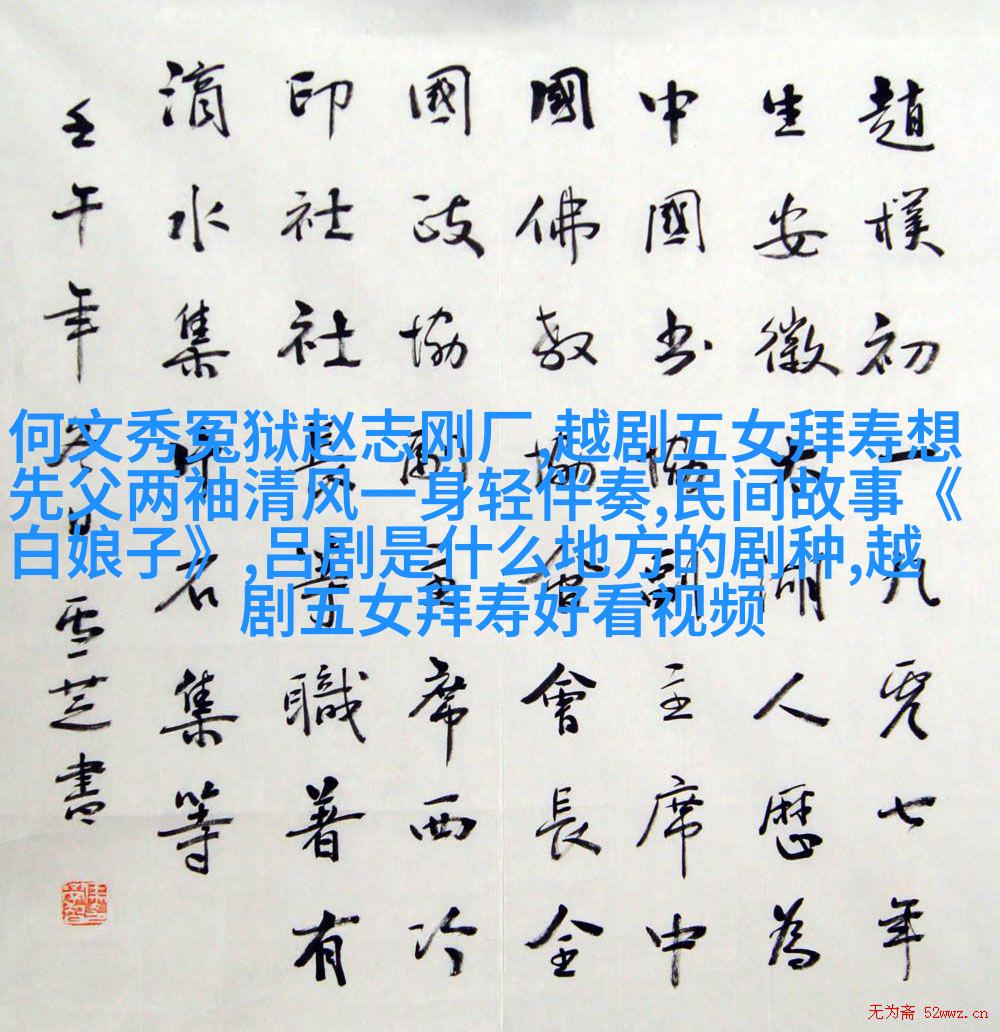 趙樸初一九七年
生安徽太湖人歷為
中國书協副主席中
國佛教協會會長全
國政協副主席西冷
印社社長等職著有
滴水集片石集等
壬午年冬日雪芝書
何文秀冤狱赵志刚厂,越剧五女拜寿想
先父两袖清风一身轻伴奏,民间故事《
白娘子》,吕剧是什么地方的剧种,越
剧五女拜寿好看视频
无为斋 52wwz.cn